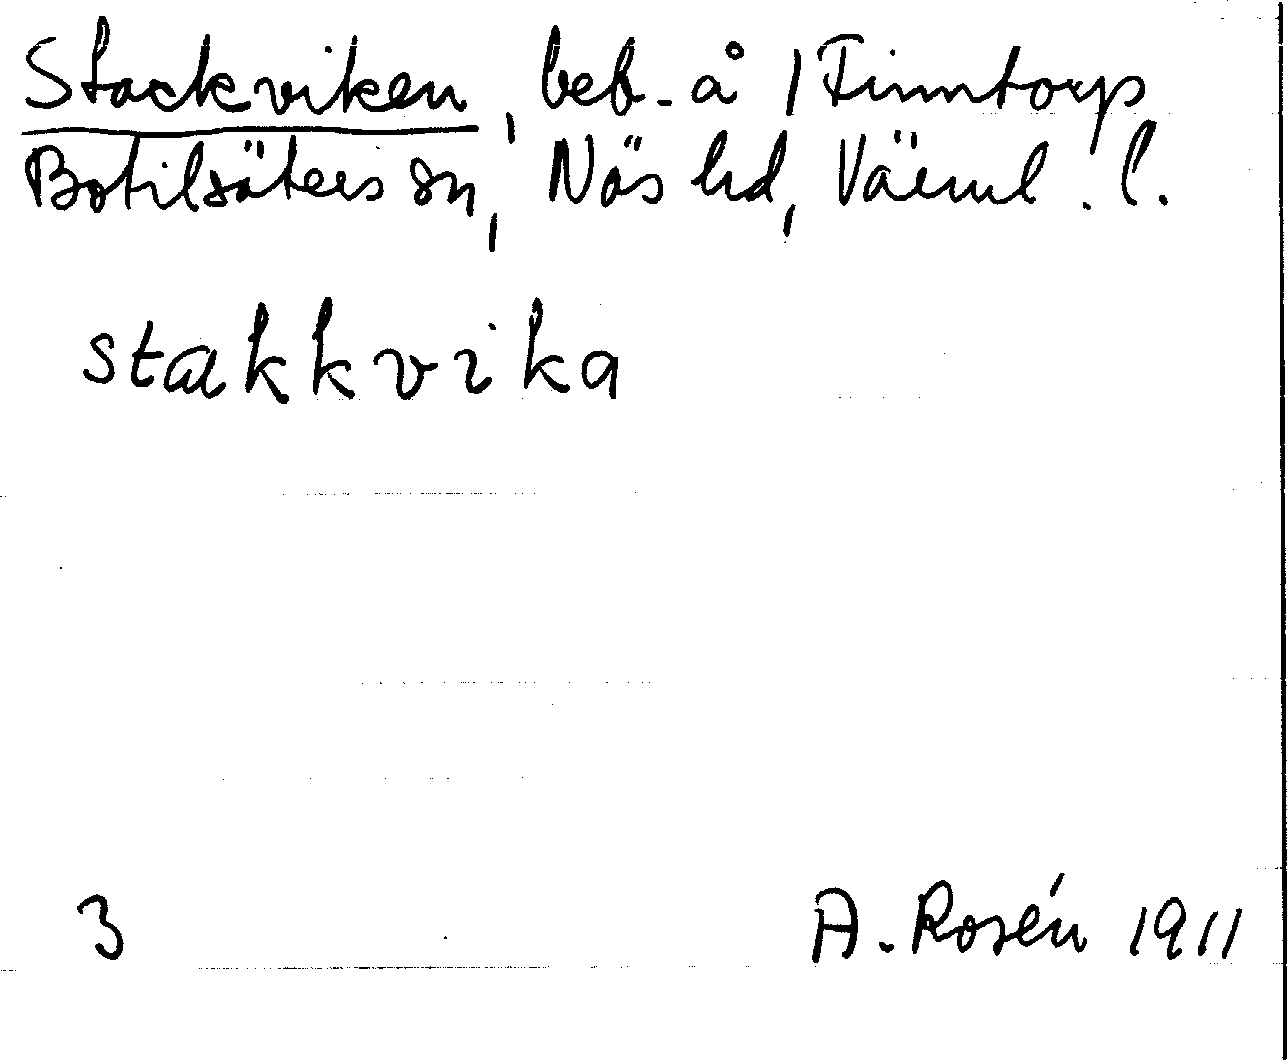 Stackviken, beb. å 1 Finntorp
Botilsäters sn, Näs hd, Värml. l.
stakkvika
3
A. Rosén 1911